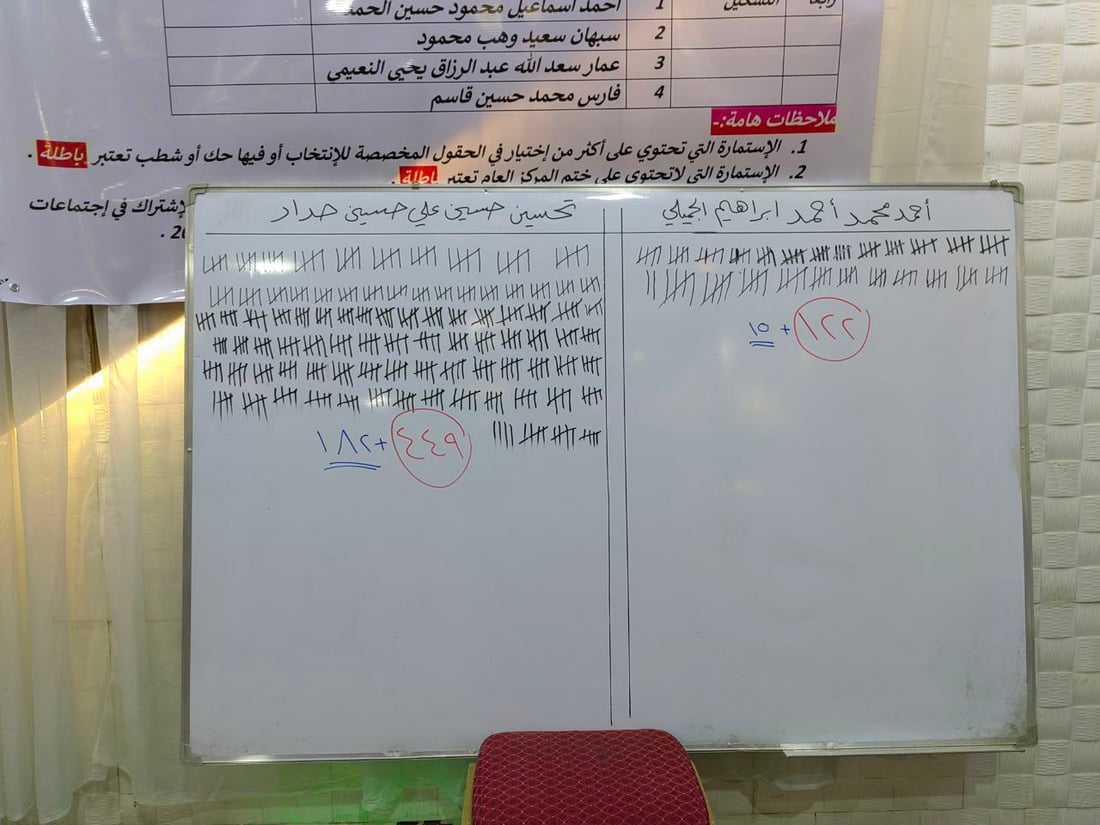 رابعاً التشكيل 1 احمد اسماعيل محمود حسين الحمد
2 سبهان سعيد وهب محمود
3 عمار سعد الله عبد الرزاق يحيى النعيمي
4 فارس محمد حسين قاسم
ملاحظات هامة:-
1. الإستمارة التي تحتوي على أكثر من إختيار في الحقول المخصصة للإنتخاب أو فيها حك أو شطب تعتبر باطلة .
2. الإستمارة التي لاتحتوي على ختم المركز العام تعتبر باطلة .
لإشتراك في إجتماعات
أحمد محمد أحمد ابراهيم الجميلي
١٢٢ + ١٥
تحسين حسين علي حسين حداد
٤٤٩ + ١٨٢